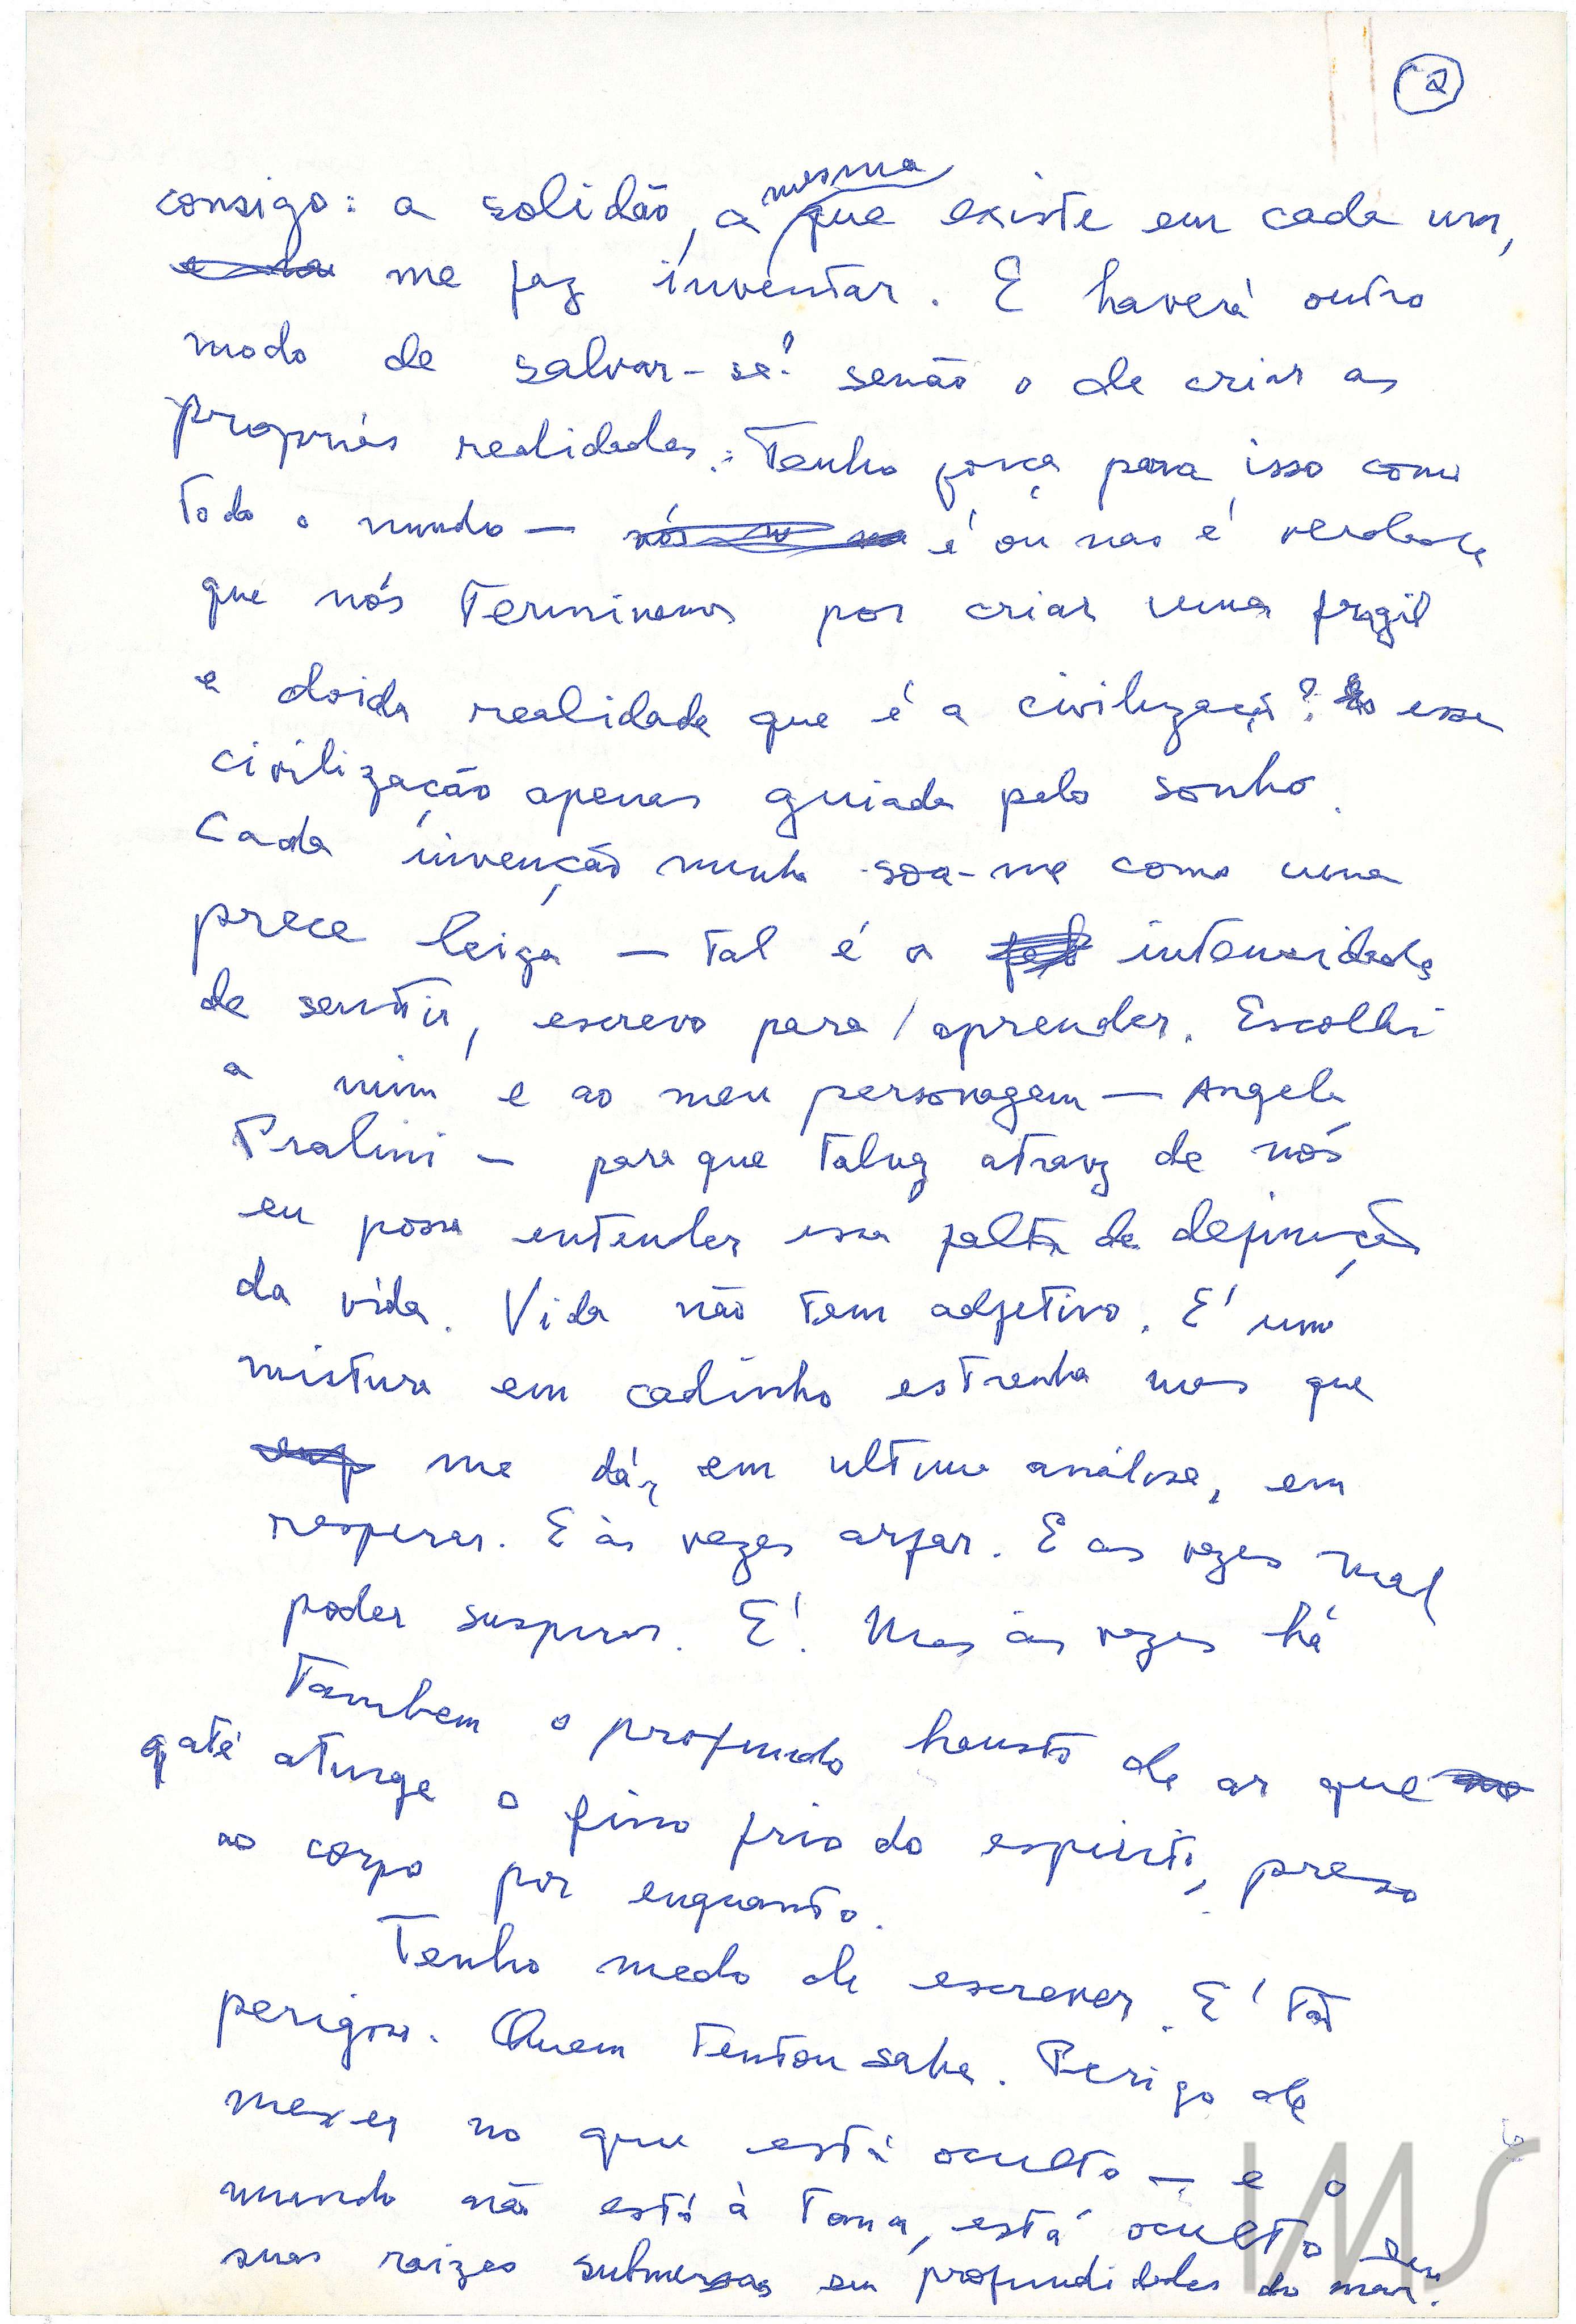 2
consigo: a solidão, a mesma que existe em cada um,
me faz inventar. E haverá outro
modo de salvar-se? senão o de criar as
proprias realidades? Tenho força para isso como
todo o mundo — é ou não é verdade
que nós terminamos por criar uma fragil
e doida realidade que é a civilização? essa
civilização apenas guiada pelo sonho.
Cada invenção minha soa-me como uma
prece leiga — tal é a intensidade
de sentir, escrevo para aprender. Escolhi
a mim e ao meu personagem — Angela
Pralini — para que talvez atravez de nós
eu possa entender essa falta de definição
da vida. Vida não tem adjetivo. É uma
mistura em cadinho estranho mas que
me dá, em ultima análise, em
respirar. E às vezes arfar. E as vezes mal
poder suspirar. É. Mas às vezes há
Tambem o profundo hausto de ar que
q até atinge o fino frio do espirito, preso
ao corpo por enquanto.
Tenho medo de escrever. É tão
perigoso. Quem tentou sabe. Perigo de
mexer no que está oculto — e o
mundo não está à tona, está oculto em
suas raizes submersas em profundidades do mar.
IMS